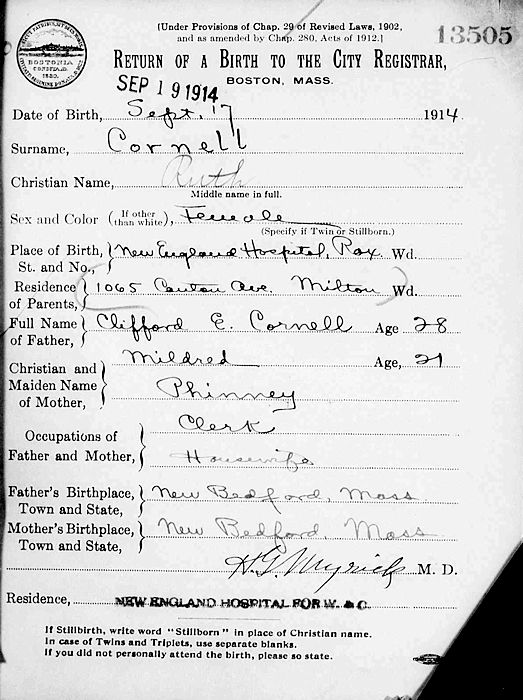 [Under Provisions of Chap. 29 of Revised Laws, 1902,
and as amended by Chap. 280, Acts of 1912.]
13505
RETURN OF A BIRTH TO THE CITY REGISTRAR,
BOSTON, MASS.
SEP 19 1914
Date of Birth, Sept. 17 1914
Surname, Cornell
Christian Name, Ruth
Middle name in full.
Sex and Color (If other than white), Female
(Specify if Twin or Stillborn.)
Place of Birth, St. and No., New England Hospital, Rox. Wd.
Residence of Parents, 1065 Canton Ave. Milton Wd.
Full Name of Father, Clifford E. Cornell Age 28
Christian and Maiden Name of Mother, Mildred Age, 21
Phinney
Occupations of Father and Mother, Clerk
Housewife
Father's Birthplace, Town and State, New Bedford, Mass
Mother's Birthplace, Town and State, New Bedford, Mass
M. D.
Residence, NEW ENGLAND HOSPITAL FOR W. & C.
If Stillbirth, write word "Stillborn" in place of Christian name.
In case of Twins and Triplets, use separate blanks.
If you did not personally attend the birth, please so state.